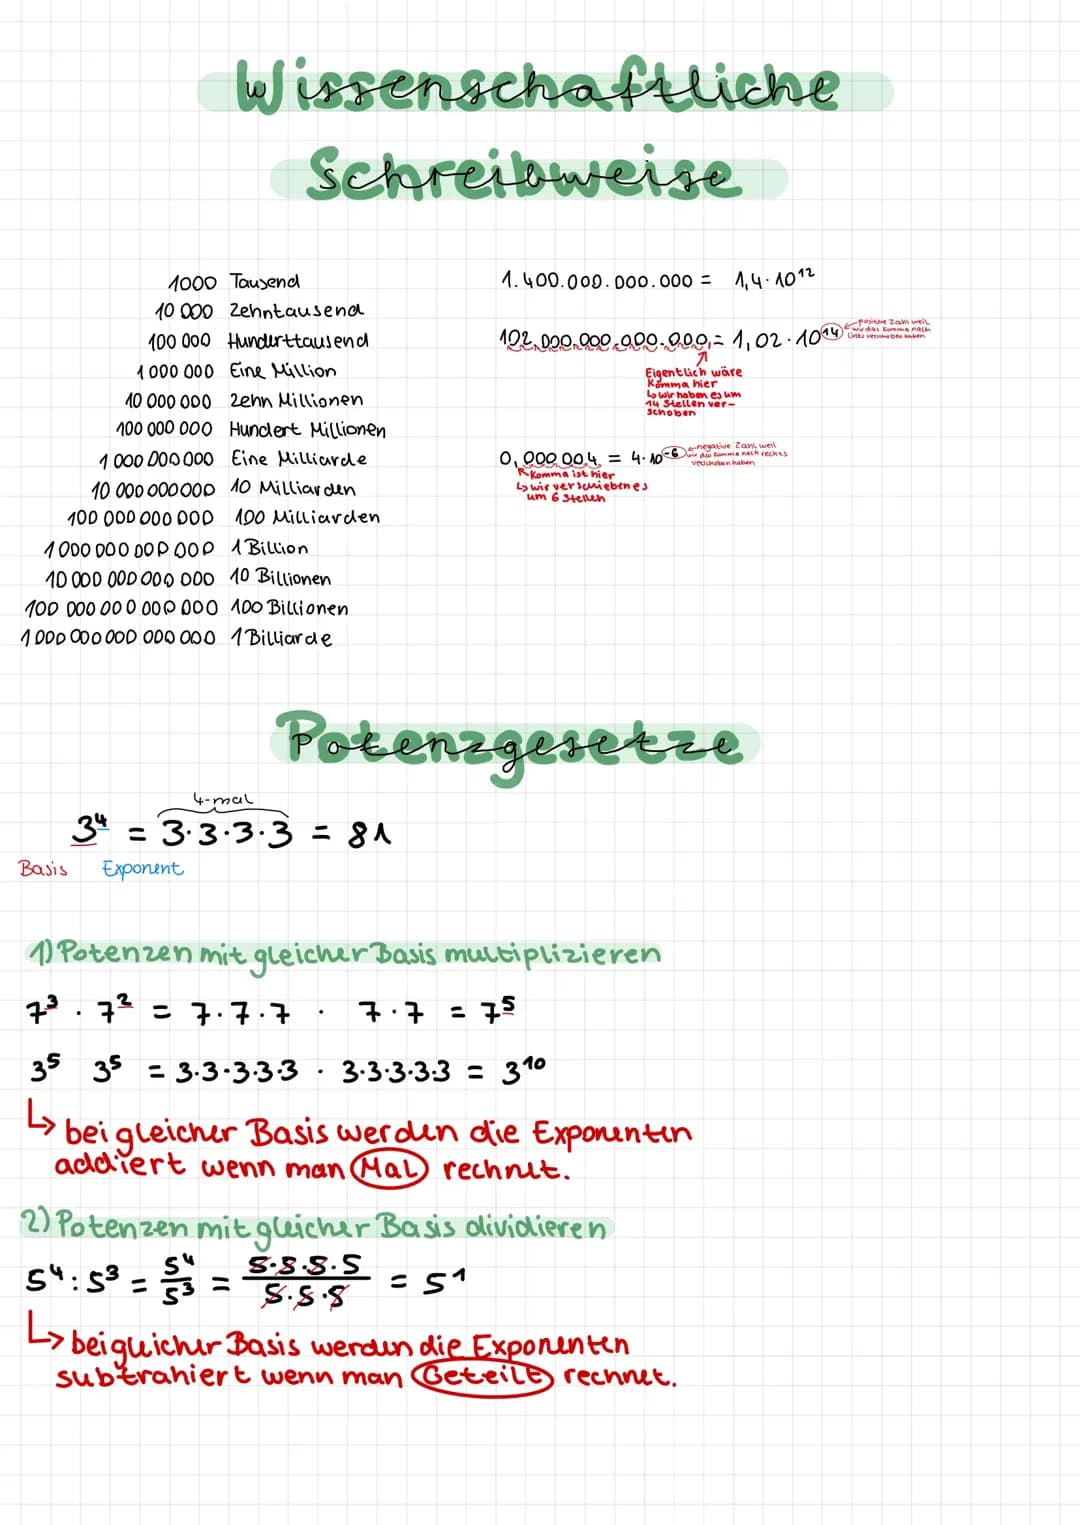 Wissenschaftliche
Schreibweise
1000 Tausend
10 000 Zehntausend
100 000 Hunderttausend
1 000 000 Eine Million
10 000 000 Zehn Millionen
100 000 000 Hundert Millionen
1 000 000 000 Eine Milliarde
10 000 000 000 10 Milliarden
100 000 000 000 100 Milliarden
1 000 000 000 000 1 Billion
10 000 000 000 000 10 Billionen
100 000 000 000 000 100 Billionen
1 000 000 000 000 000 1 Billiarde
1.400.000.000.000 = 1,4 · 10¹²
102.000.000.000.000, = 1,02 · 10¹⁴
← positive Zahl weil
wir das Komma nach
links verschoben haben
Eigentlich wäre
Komma hier
↳ wir haben es um
14 Stellen ver-
schoben
0,000 004 = 4 · 10⁻⁶
← negative Zahl weil
wir das Komma nach rechts
verschoben haben
Komma ist hier
↳ wir verschieben es
um 6 Stellen
Potenzgesetze
4-mal
3⁴ = 3·3·3·3 = 81
Basis Exponent
1) Potenzen mit gleicher Basis multiplizieren
7³ · 7² = 7·7·7 · 7·7 = 7⁵
3⁵ 3⁵ = 3·3·3·3·3 · 3·3·3·3·3 = 3¹⁰
↳ bei gleicher Basis werden die Exponenten
addiert wenn man Mal rechnet.
2) Potenzen mit gleicher Basis dividieren
5⁴ : 5³ = 5⁴/5³ = 5·5·5·5/5·5·5 = 5¹
↳ bei gleicher Basis werden die Exponenten
subtrahiert wenn man Geteilt rechnet.